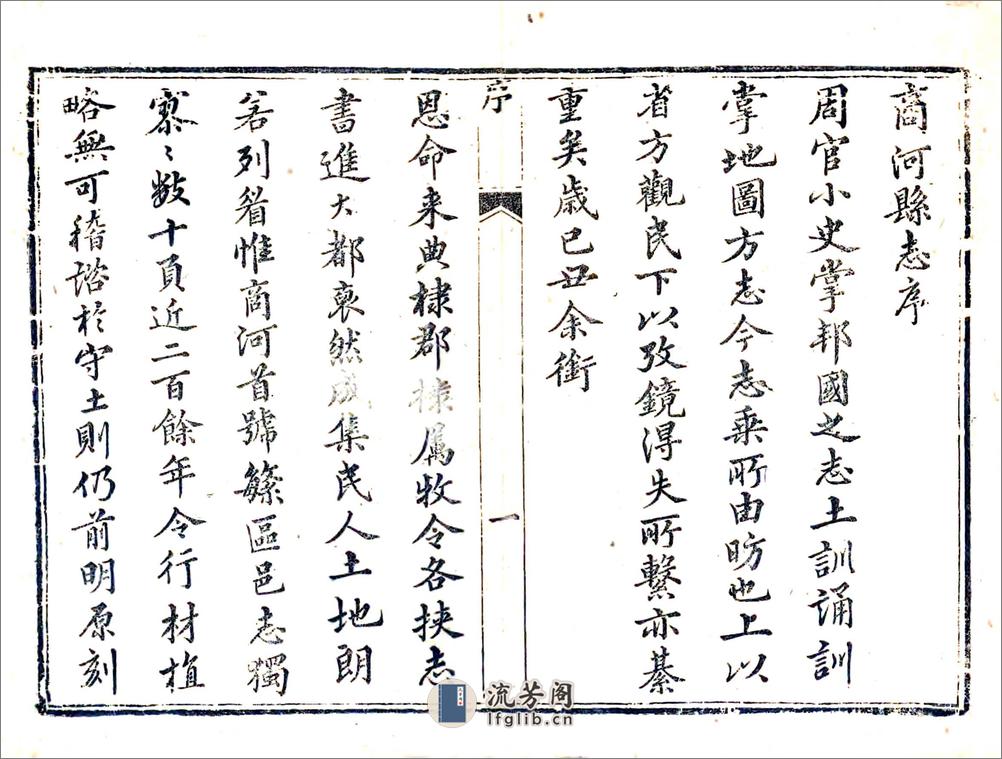 商河縣志序
周官小史掌邦國之志土訓誦訓
掌地圖方志今志乘所由昉也上以
省方觀民下以攷鏡得失所繫亦綦
重矣歲己丑余銜
序
一
恩命来典棣郡擄属牧令各挟志
書進大都裒然成集民人土地朗
若列眉惟商河首號繇區邑志獨
寥〻數十頁近二百餘年令行材植
略無可稽諮於守土則仍前明原刻
流芳阁
lfglib.cn